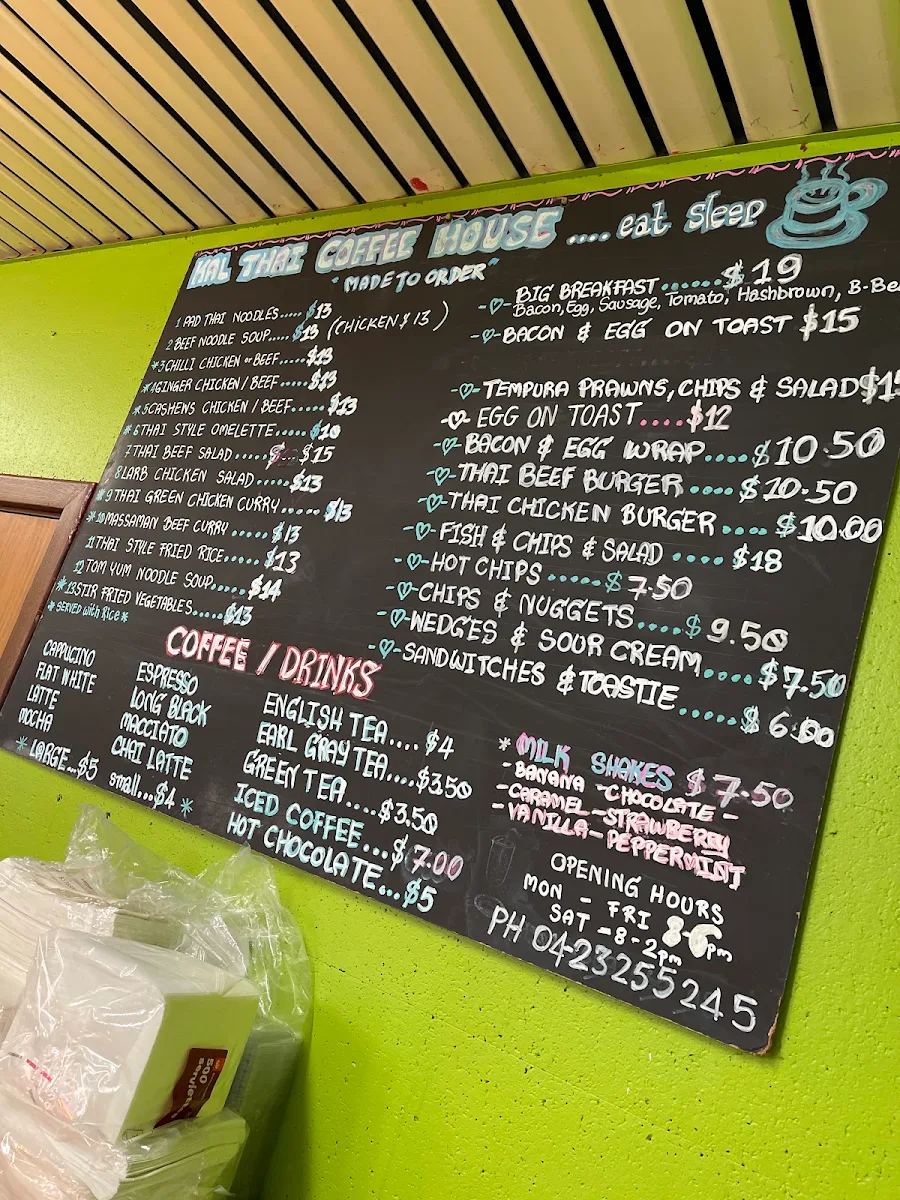 KAL THAI COFFEE HOUSE .... eat sleep
"MADE TO ORDER"
1 PAD THAI NOODLES..... $13
2 BEEF NOODLE SOUP..... $13 (CHICKEN $13)
*3 CHILLI CHICKEN or BEEF..... $13
*4 GINGER CHICKEN / BEEF..... $13
*5 CASHEWS CHICKEN / BEEF..... $13
*6 THAI STYLE OMELETTE..... $10
7 THAI BEEF SALAD..... $15
8 LARB CHICKEN SALAD..... $13
*9 THAI GREEN CHICKEN CURRY..... $13
*10 MASSAMAN BEEF CURRY..... $13
11 THAI STYLE FRIED RICE..... $13
12 TOM YUM NOODLE SOUP..... $14
*13 STIR FRIED VEGETABLES..... $13
*SERVED with Rice*
BIG BREAKFAST...... $19
Bacon, Egg, Sausage, Tomato, Hashbrown, B-Be
BACON & EGG ON TOAST $15
TEMPURA PRAWNS, CHIPS & SALAD
EGG ON TOAST.... $12
BACON & EGG WRAP.... $10.50
THAI BEEF BURGER.... $10.50
THAI CHICKEN BURGER.... $10.00
FISH & CHIPS & SALAD.... $18
HOT CHIPS..... $7.50
CHIPS & NUGGETS.... $9.50
WEDGES & SOUR CREAM.... $7.50
SANDWITCHES & TOASTIE...... $6.00
COFFEE / DRINKS
CAPPUCINO
FLAT WHITE
LATTE
MOCHA
* LARGE... $5
ESPRESSO
LONG BLACK
MACCIATO
CHAI LATTE
small... $4 *
ENGLISH TEA.... $4
EARL GRAY TEA.... $3.50
GREEN TEA.... $3.50
ICED COFFEE... $7.00
HOT CHOCOLATE... $5
* MILK SHAKES $7.50
- BANANA - CHOCOLATE -
- CARAMEL - STRAWBERRY
- VANILLA - PEPPERMINT
OPENING HOURS
MON - FRI 8-6pm
SAT - 8-2pm
PH 0423255245
500
serviettes